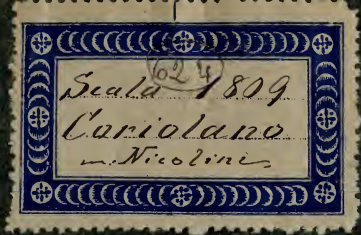 624
Scala 1809
Coriolano
m. Nicolini